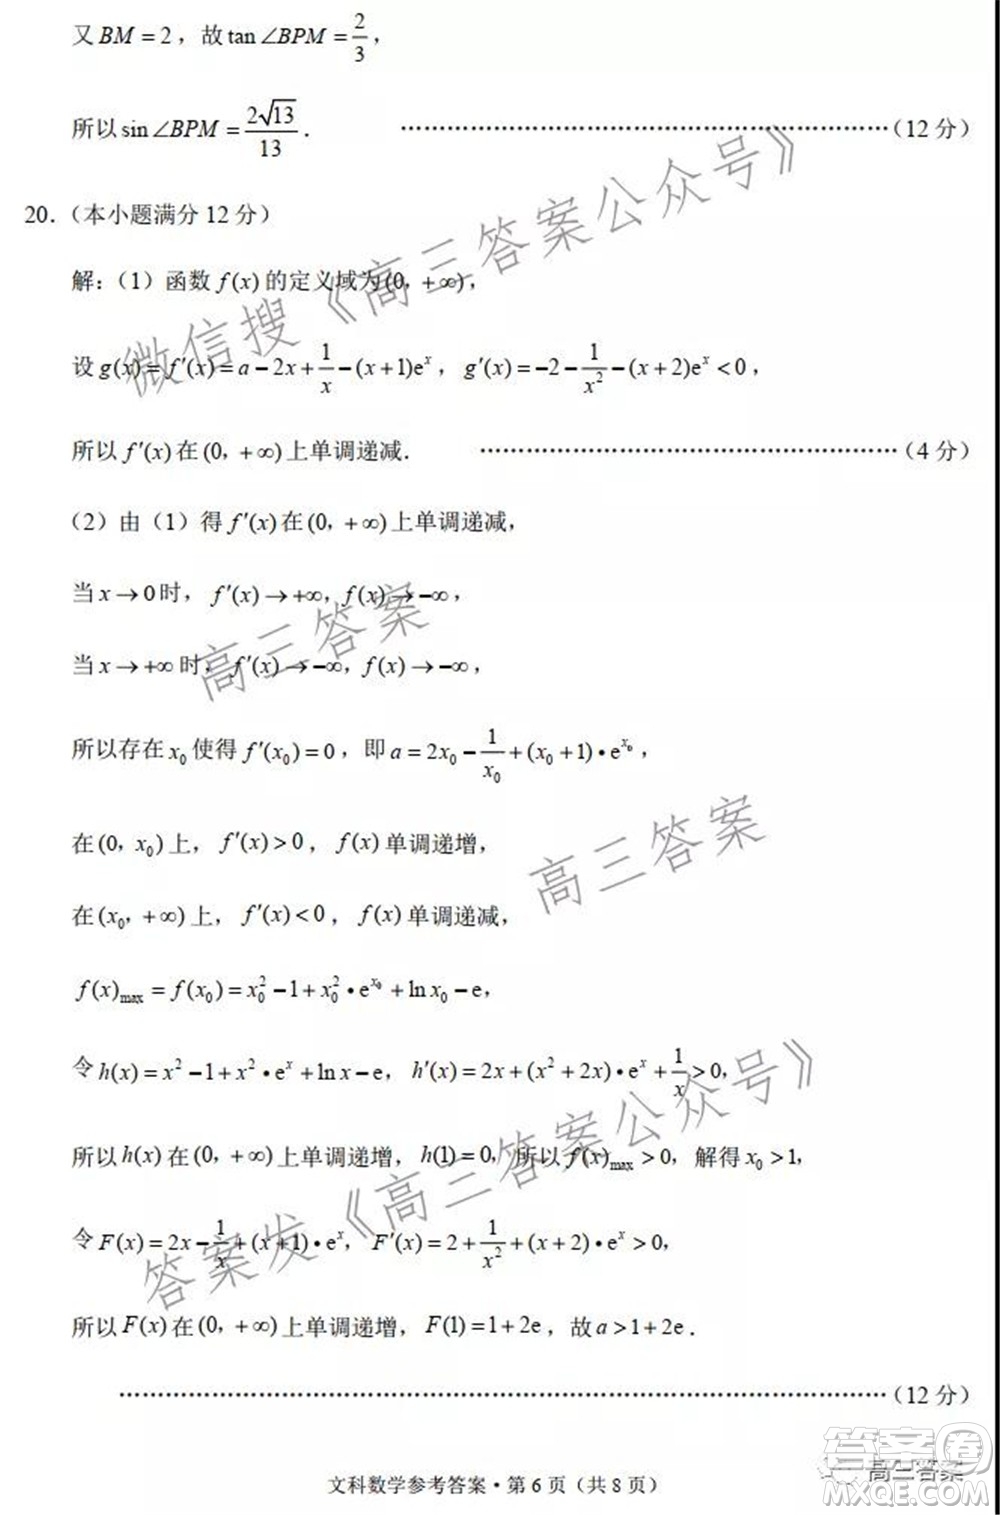 又 BM = 2，故 tan∠BPM = 2/3，
所以 sin∠BPM = 2√13/13． ………………………………………………（12 分）
20．（本小题满分 12 分）
解：（1）函数 f(x) 的定义域为 (0，+∞)，
设 g(x) = f′(x) = a − 2x + 1/x − (x+1)eˣ，g′(x) = −2 − 1/x² − (x+2)eˣ < 0，
所以 f′(x) 在 (0，+∞) 上单调递减． ………………………………………（4 分）
（2）由（1）得 f′(x) 在 (0，+∞) 上单调递减，
当 x → 0 时，f′(x) → +∞，f(x) → −∞，
当 x → +∞ 时，f′(x) → −∞，f(x) → −∞，
所以存在 x₀ 使得 f′(x₀) = 0，即 a = 2x₀ − 1/x₀ + (x₀+1)•e^(x₀)，
在 (0，x₀) 上，f′(x) > 0，f(x) 单调递增，
在 (x₀，+∞) 上，f′(x) < 0，f(x) 单调递减，
f(x)max = f(x₀) = x₀² − 1 + x₀²•e^(x₀) + ln x₀ − e，
令 h(x) = x² − 1 + x²•eˣ + ln x − e，h′(x) = 2x + (x² + 2x)•eˣ + 1/x > 0，
所以 h(x) 在 (0，+∞) 上单调递增，h(1) = 0，所以 f(x)max > 0，解得 x₀ > 1，
令 F(x) = 2x − 1/x + (x+1)•eˣ，F′(x) = 2 + 1/x² + (x+2)•eˣ > 0，
所以 F(x) 在 (0，+∞) 上单调递增，F(1) = 1 + 2e，故 a > 1 + 2e．
………………………………………………………………………（12 分）
文科数学参考答案・第 6 页（共 8 页）
微信搜《高三答案公众号》
高三答案
高三答案
答案发《高三答案公众号》
高三答案
答案卷
MXQE.COM